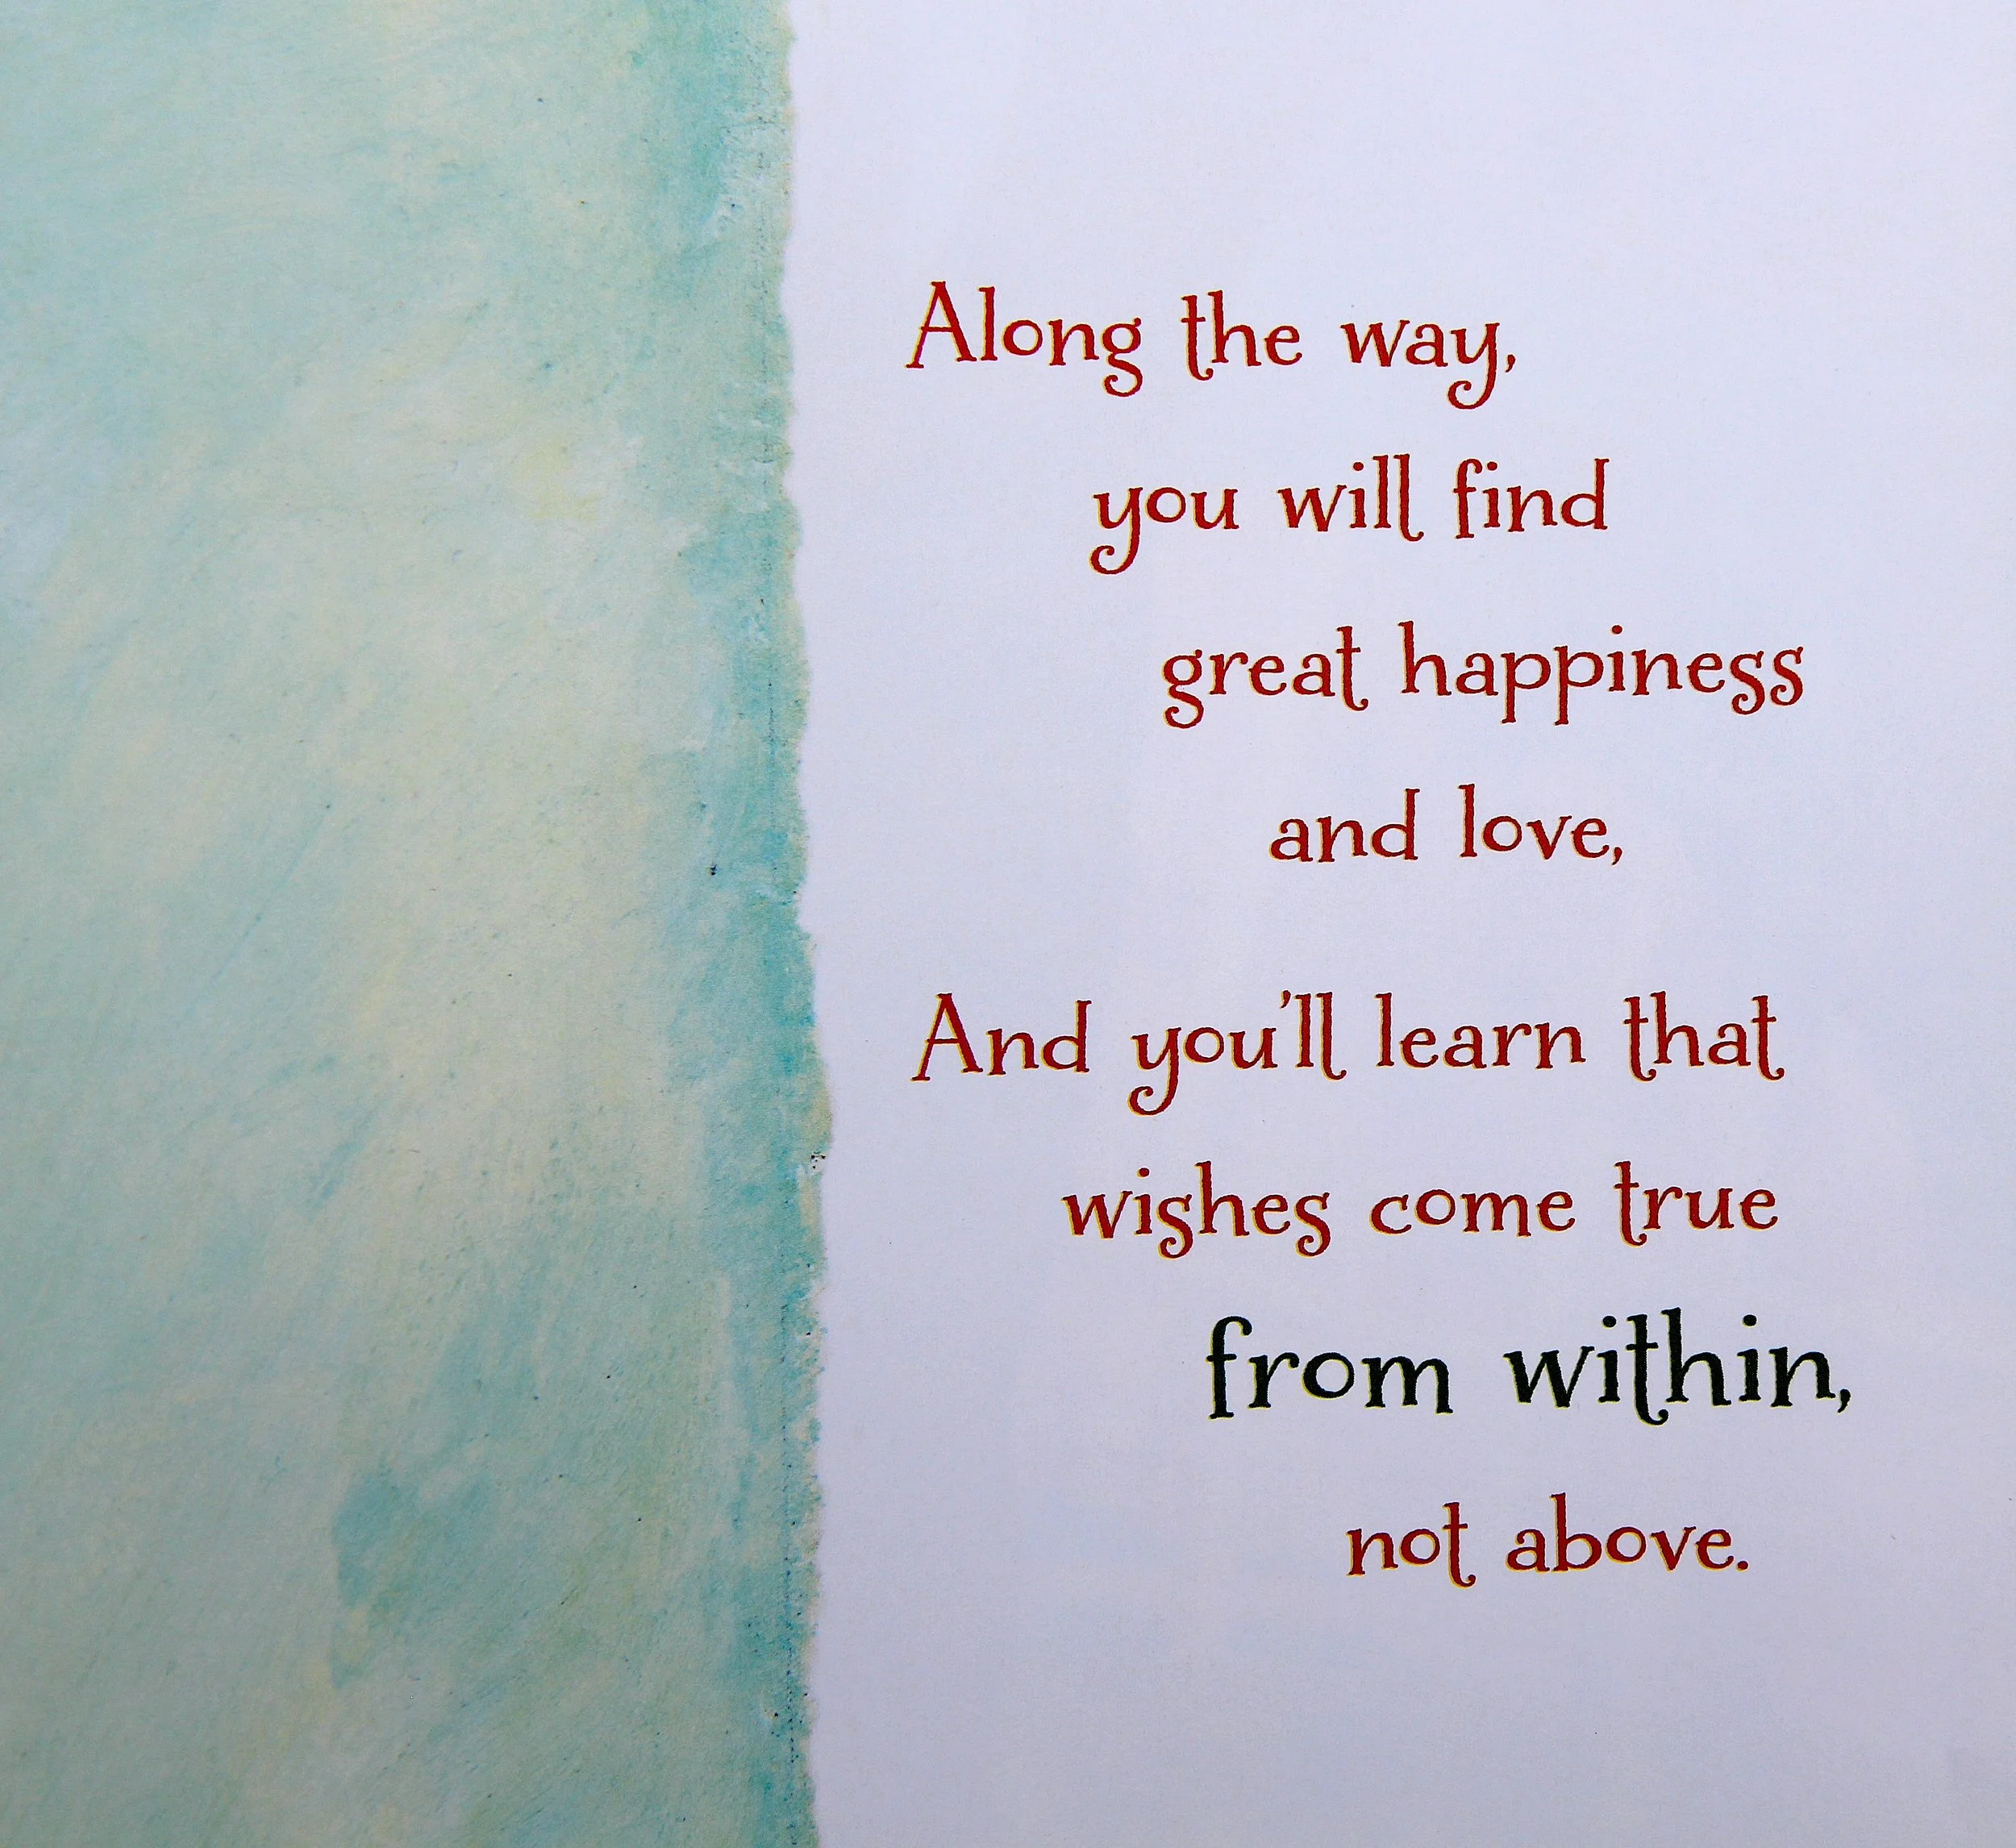 Along the way,
you will find
great happiness
and love,
And you'll learn that
wishes come true
from within,
not above.